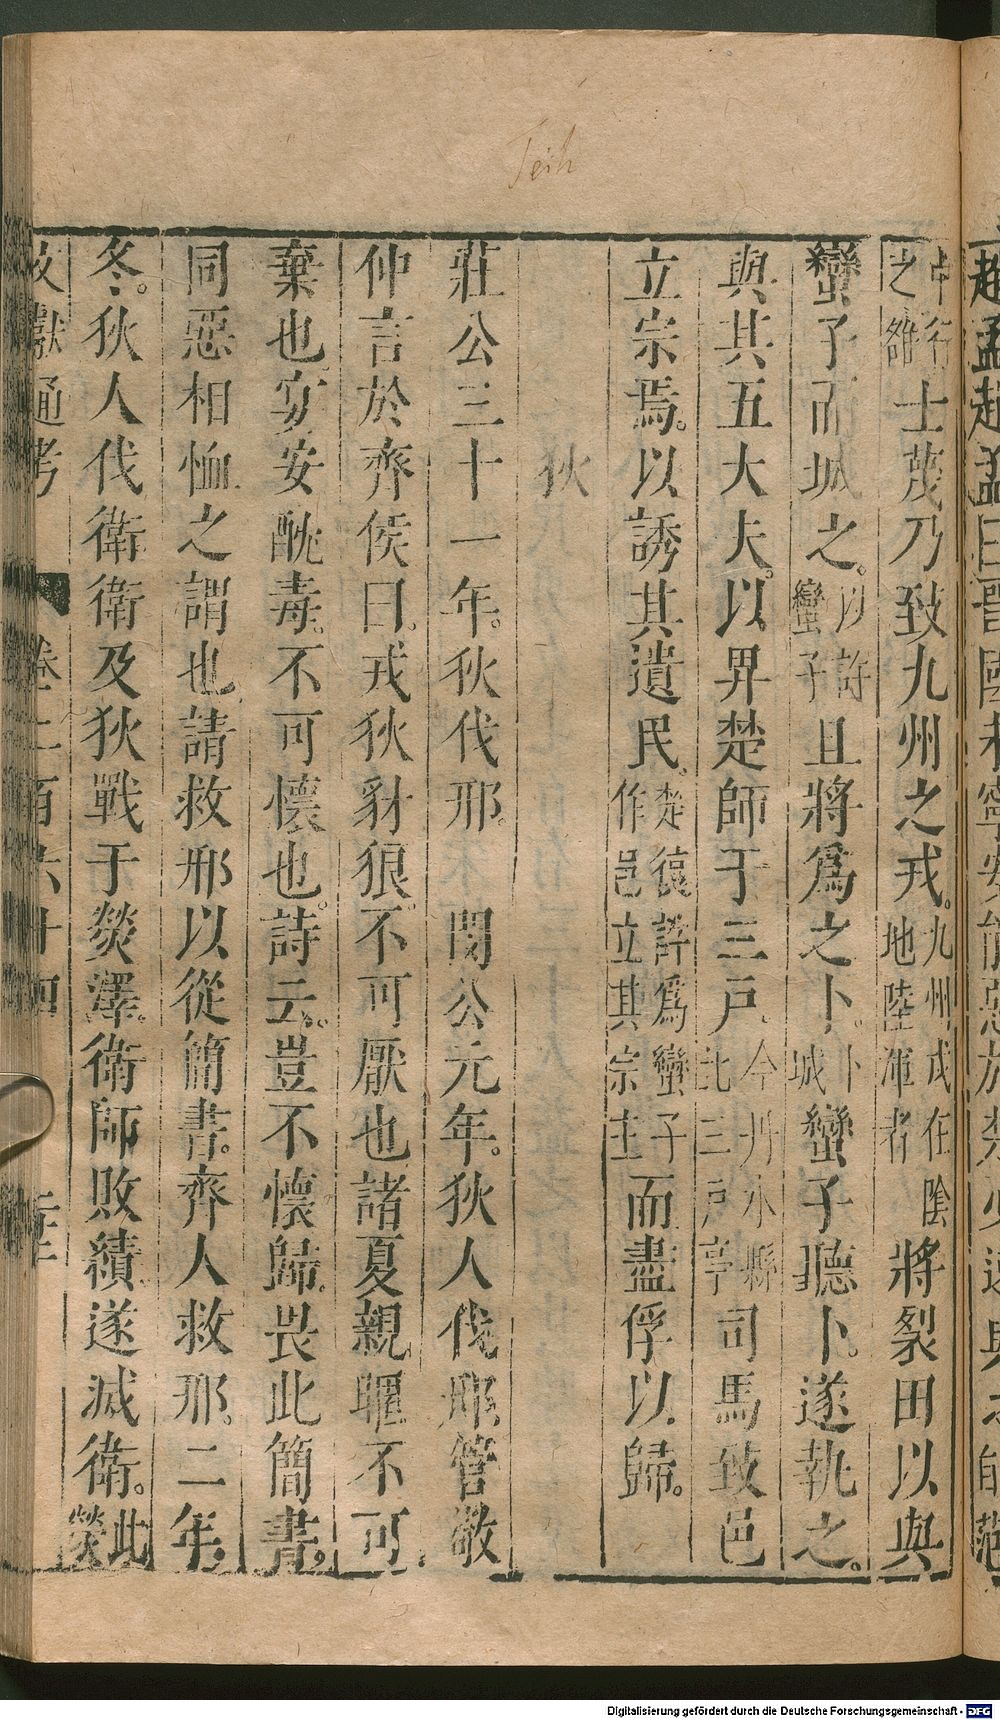 Teih
趙孟趙孟曰晉國未寧安能惡於楚必速與之士蔑
中行之雒士蔑乃致九州之戎。九州戎在陰地陸渾者將裂田以與
蠻子而城之。以許蠻子且將爲之卜。卜城蠻子聽卜。遂執之。
與其五大夫。以畀楚師于三戶。今丹水縣北三戶亭司馬致邑
立宗焉。以誘其遺民。楚復詐爲蠻子作邑立其宗主而盡俘以歸。
狄
莊公三十一年。狄伐邢。閔公元年。狄人伐邢。管敬
仲言於齊侯曰。戎狄豺狼。不可厭也諸夏親暱不可
棄也宴安酖毒。不可懷也。詩云。豈不懷歸。畏此簡書。
同惡相恤之謂也。請救邢以從簡書。齊人救邢。二年。
冬。狄人伐衛衛及狄戰于熒澤。衛師敗績遂滅衛。此熒
文獻通考 卷二百六十四
Digitalisierung gefördert durch die Deutsche Forschungsgemeinschaft - DFG